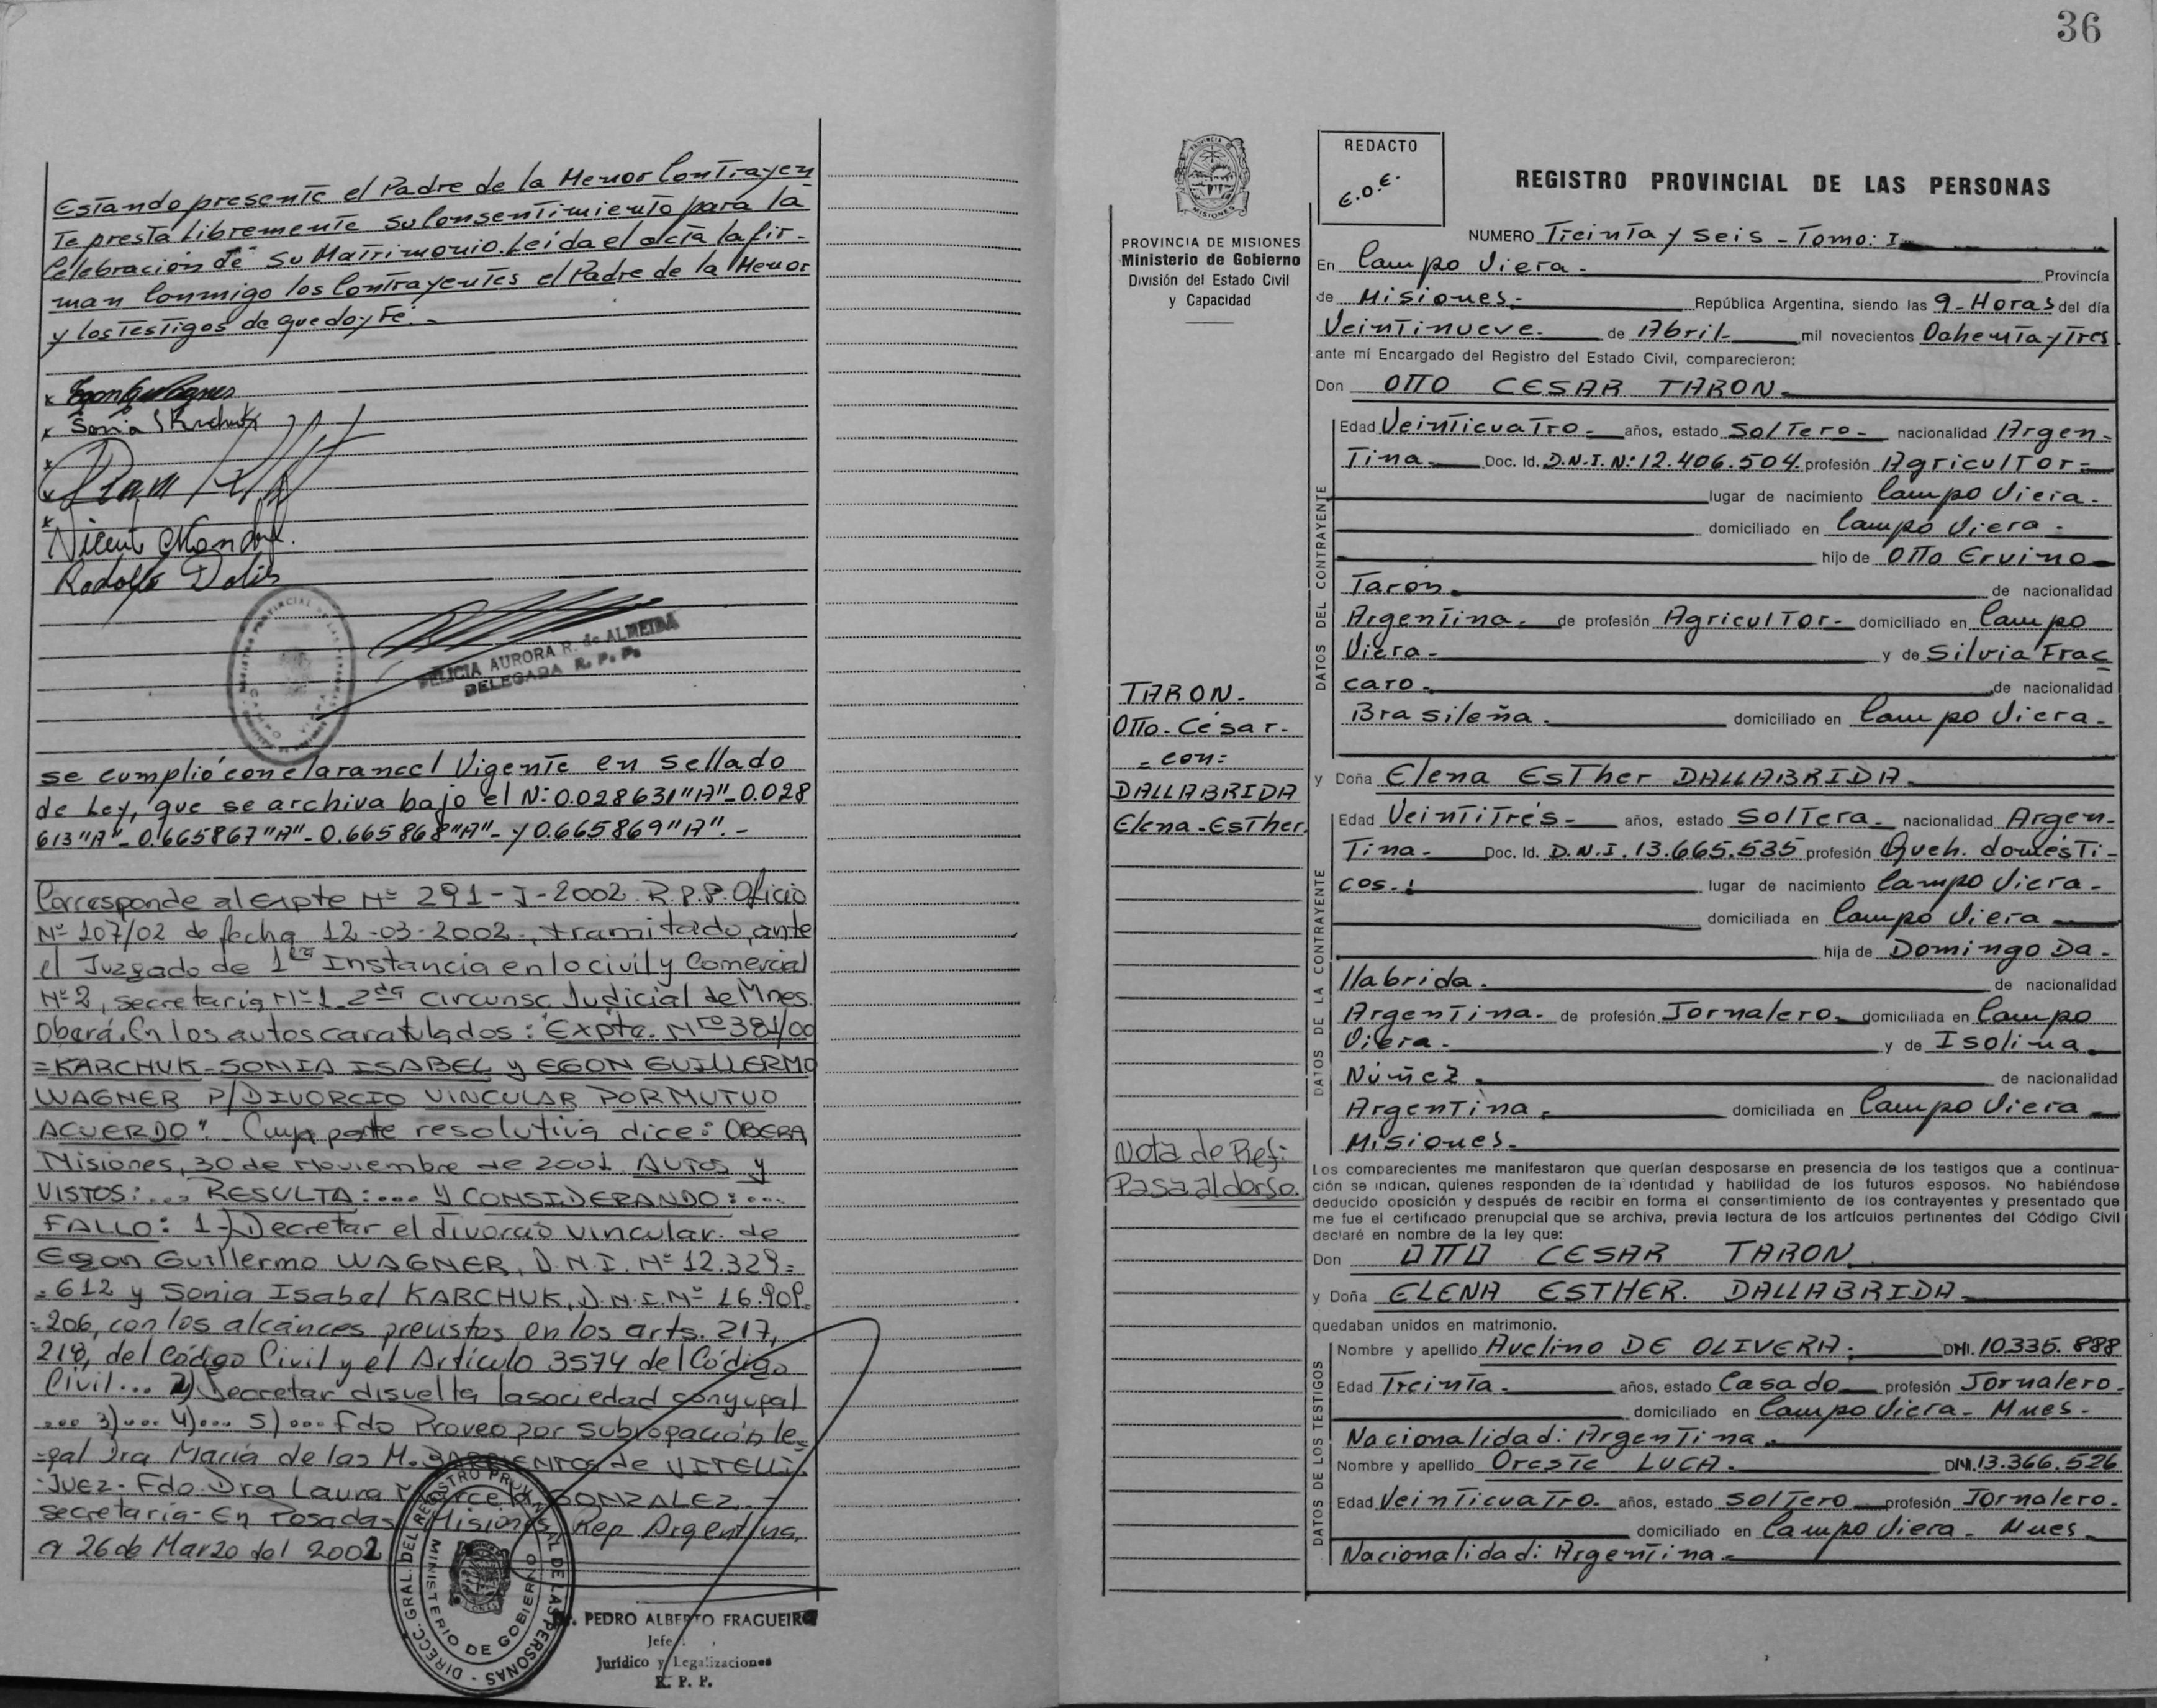 Estando presente el Padre de la Menor Contrayen
Te presta libremente su consentimiento para la
Celebración de su Matrimonio. Leida el acta la fir-
man conmigo los Contrayentes el Padre de la Menor
y los Testigos de que doy Fé.-
Sonia I Karchuk
Rodolfo
FELICIA AURORA R. de ALMEIDA
DELEGADA R. P. P.
se cumplió con el arancel Vigente en sellado
de Ley, que se archiva bajo el N: 0.028631 "A"- 0.028
613 "A"- 0.665867 "A"- 0.665868 "A"- y 0.665869 "A".-
Corresponde al Expte Nº 291-J-2002. R.P.P. Oficio
Nº 107/02 de fecha 12-03-2002-, tramitado, ante
el Juzgado de 1ra Instancia en lo civil y Comercial
Nº 2, secretaria Nº 1. 2da Circunsc. Judicial de Mnes.
Oberá. En los autos caratulados: "Expte. Nro 381/00
=KARCHUK-SONIA ISABEL y EGON GUILLERMO
WAGNER P/DIVORCIO VINCULAR POR MUTUO
ACUERDO". Cuya parte resolutiva dice: OBERA,
Misiones, 30 de Noviembre de 2001 AUTOS y
VISTOS:... RESULTA:.... Y CONSIDERANDO:....
FALLO: 1-) Decretar el divorcio vincular de
Egon Guillermo WAGNER, D.N.I. Nº 12.329=
=612 y Sonia Isabel KARCHUK, D.N.I. Nº 16.909.
=206, con los alcances previstos en los arts. 217,
218, del Código Civil y el Artículo 3574 del Código
Civil... 2) Decretar disuelta la sociedad conyugal
... 3).... 4)... 5)... Fdo Proveo por subrogación le=
=gal Dra María de las M. BARRIENTOS de VITELLI.
-Juez- Fdo. Dra Laura Marcela GONZALEZ.-
secretaria- En Posadas, Misiones, Rep. Argentina,
a 26 de Marzo del 2002
DIRECC. GRAL. DEL REGISTRO PROVINCIAL DE LAS PERSONAS
MINISTERIO DE GOBIERNO
PEDRO ALBERTO FRAGUEIRO
Jefe
Jurídico y Legalizaciones
R. P. P.
36
PROVINCIA DE MISIONES
Ministerio de Gobierno
División del Estado Civil
y Capacidad
TARON.
Otto-César-
=con:
DALLABRIDA
Elena-Esther.
Nota de Ref:
Pasa al dorso.
REDACTO
E.O.E.
REGISTRO PROVINCIAL DE LAS PERSONAS
NUMERO Treinta y seis - Tomo: I
En Campo Viera. Provincia
de Misiones.- República Argentina, siendo las 9-Horas del día
Veintinueve.- de Abril- mil novecientos Ochenta y Tres
ante mí Encargado del Registro del Estado Civil, comparecieron:
Don OTTO CESAR TARON.
DATOS DEL CONTRAYENTE
Edad Veinticuatro- años, estado Soltero- nacionalidad Argen-
Tina.- Doc. Id. D.N.I. N: 12.406.504. profesión Agricultor-
lugar de nacimiento Campo Viera.
domiciliado en Campo Viera.
hijo de Otto Ervino
Taron. de nacionalidad
Argentina.- de profesión Agricultor- domiciliado en Campo
Viera.- y de Silvia Frac
caro.- de nacionalidad
Brasileña.- domiciliado en Campo Viera.
y Doña Elena Esther DALLABRIDA.
DATOS DE LA CONTRAYENTE
Edad Veintitrés- años, estado Soltera.- nacionalidad Argen-
Tina.- Doc. Id. D.N.I. 13.665.535 profesión Queh. domésti-
cos.- lugar de nacimiento Campo Viera.-
domiciliada en Campo Viera
hija de Domingo Da-
llabrida. de nacionalidad
Argentina.- de profesión Jornalero. domiciliada en Campo
Viera.- y de Isolina
Núñez. de nacionalidad
Argentina. domiciliada en Campo Viera
Misiones.-
Los comparecientes me manifestaron que querían desposarse en presencia de los testigos que a continua-
ción se indican, quienes responden de la identidad y habilidad de los futuros esposos. No habiéndose
deducido oposición y después de recibir en forma el consentimiento de los contrayentes y presentado que
me fue el certificado prenupcial que se archiva, previa lectura de los artículos pertinentes del Código Civil
declaré en nombre de la ley que:
Don OTTO CESAR TARON
y Doña ELENA ESTHER. DALLABRIDA
quedaban unidos en matrimonio.
DATOS DE LOS TESTIGOS
Nombre y apellido Avelino DE OLIVERA. DNI. 10.335.888
Edad Treinta.- años, estado Casado profesión Jornalero.
domiciliado en Campo Viera- Mnes-
Nacionalidad: Argentina.
Nombre y apellido Oreste LUCA. DNI. 13.366.526
Edad Veinticuatro- años, estado Soltero profesión Jornalero-
domiciliado en Campo Viera- Mnes
Nacionalidad: Argentina.